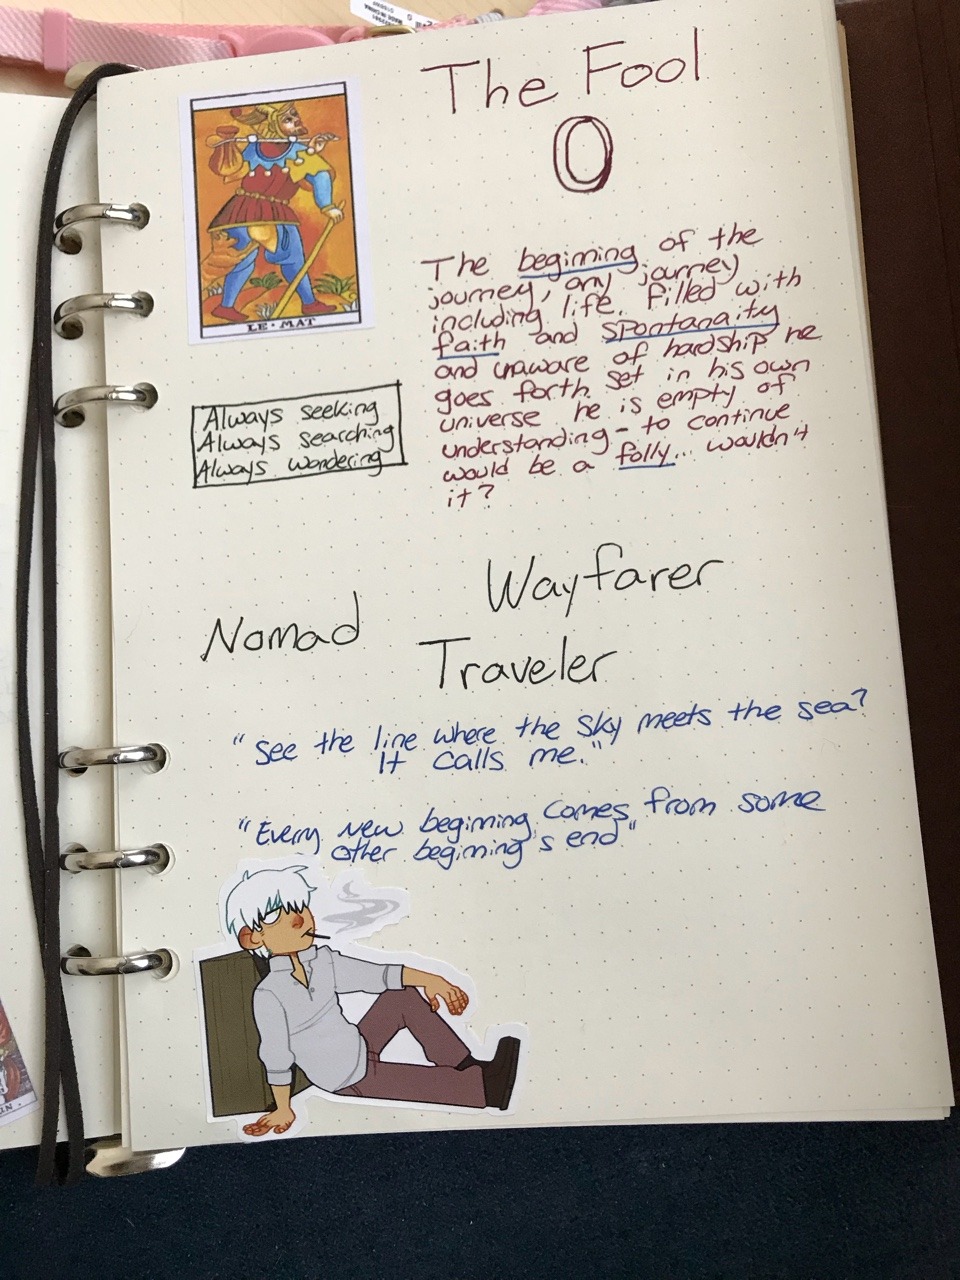 The Fool
0
LE·MAT
The begining of the
journey, any journey
including life. Filled with
faith and spontanaity
and unaware of hardship he
goes forth. Set in his own
universe he is empty of
understanding - to continue
would be a folly... wouldn't
it?
Always seeking
Always searching
Always wondering
Wayfarer
Nomad
Traveler
"See the line where the sky meets the sea?
It calls me."
"Every new begining comes from some
other begining's end"
MADE IN CHINA